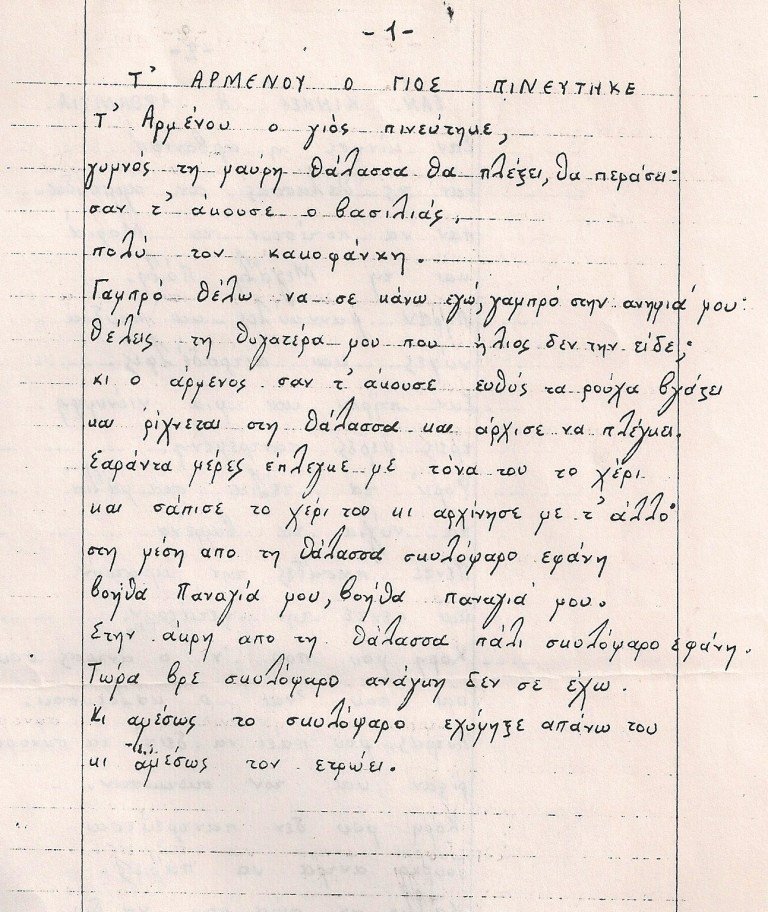 -1-
Τ' ΑΡΜΕΝΟΥ Ο ΓΙΟΣ ΠΙΝΕΥΤΗΚΕ
Τ' Αρμένου ο γιός πινεύτηκε,
γυμνός τη μαύρη θάλασσα θα πλέξει, θα περάσει·
σαν τ' άκουσε ο βασιλιάς,
πολύ τον κακοφάνκη.
Γαμπρό θέλω να σε κάνω εγώ, γαμπρό στην ανηψιά μου·
θέλεις τη θυγατέρα μου που ήλιος δεν την είδε;
κι ο άρμένος σαν τ' άκουσε ευθύς τα ρούχα βγάζει
και ρίχνεται στη θάλασσα και άρχισε να πλέγκει.
Σαράντα μέρες έπλεγκε με τονα του το χέρι
και σάπισε το χέρι του κι αρχίνησε με τ' άλλο·
στη μέση απο τη θάλασσα σκυλόψαρο εφάνη
βοήθα Παναγιά μου, βοήθα παναγιά μου.
Στην άκρη απο τη θάλασσα πάλι σκυλόψαρο εφάνη.
Τώρα βρε σκυλόψαρο ανάγκη δεν σε έχω.
Κι αμέσως το σκυλόψαρο εχύμηξε απάνω του
κι αμέσως τον ετρώει.